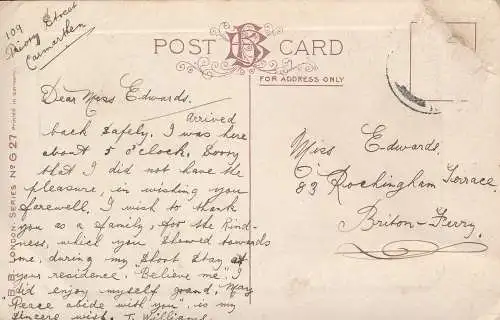 109
Priory Street
Carmarthen
POST CARD
FOR ADDRESS ONLY
B. B. LONDON. SERIES No G 27 Printed in Germany.
Dear Miss Edwards.
Arrived
back safely. I was here
about 5 o'clock. Sorry
that I did not have the
pleasure, in wishing you
farewell. I wish to thank
you as a family, for the Kind-
ness, which you shewed towards
me, during my short stay at
your residence. "Believe me" I
did enjoy myself grand. May
Peace abide with you, is my
sincere wish. T. Williams.
Miss Edwards.
83 Rockingham Terrace.
Briton-Ferry.